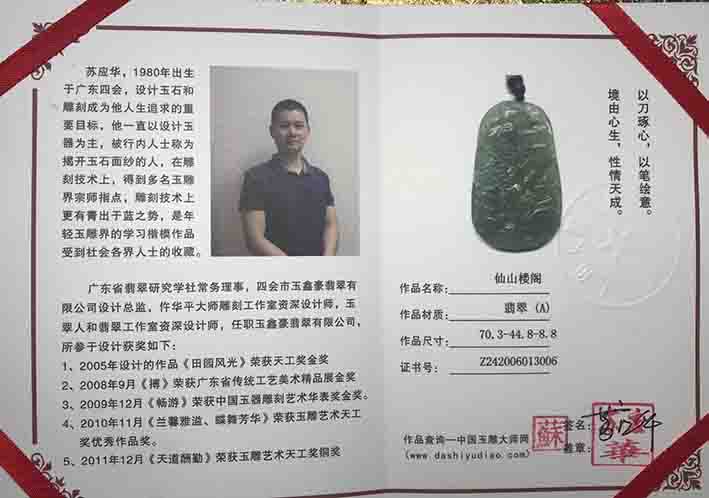 苏应华，1980年出生
于广东四会，设计玉石和
雕刻成为他人生追求的重
要目标，他一直以设计玉
器为主，被行内人士称为
揭开玉石面纱的人，在雕
刻技术上，得到多名玉雕
界宗师指点，雕刻技术上
更有青出于蓝之势，是年
轻玉雕界的学习楷模作品
受到社会各界人士的收藏。
广东省翡翠研究学社常务理事，四会市玉鑫豪翡翠有
限公司设计总监，仵华平大师雕刻工作室资深设计师，玉
翠人和翡翠工作室资深设计师，任职玉鑫豪翡翠有限公司，
所参于设计获奖如下：
1、2005年设计的作品《田园风光》荣获天工奖金奖
2、2008年9月《搏》荣获广东省传统工艺美术精品展金奖
3、2009年12月《畅游》荣获中国玉器雕刻艺术华表奖金奖。
4、2010年11月《兰馨雅溢、蝶舞芳华》荣获玉雕艺术天工
奖优秀作品奖。
5、2011年12月《天道酬勤》荣获玉雕艺术天工奖铜奖
以刀琢心，以笔绘意。
境由心生，性情天成。
作品名称：仙山楼阁
作品材质：翡翠（A）
作品尺寸：70.3-44.8-8.8
证书号：Z242006013006
签名：
盖章：
蘇
作品查询—中国玉雕大师网
(www.dashiyudiao.com)